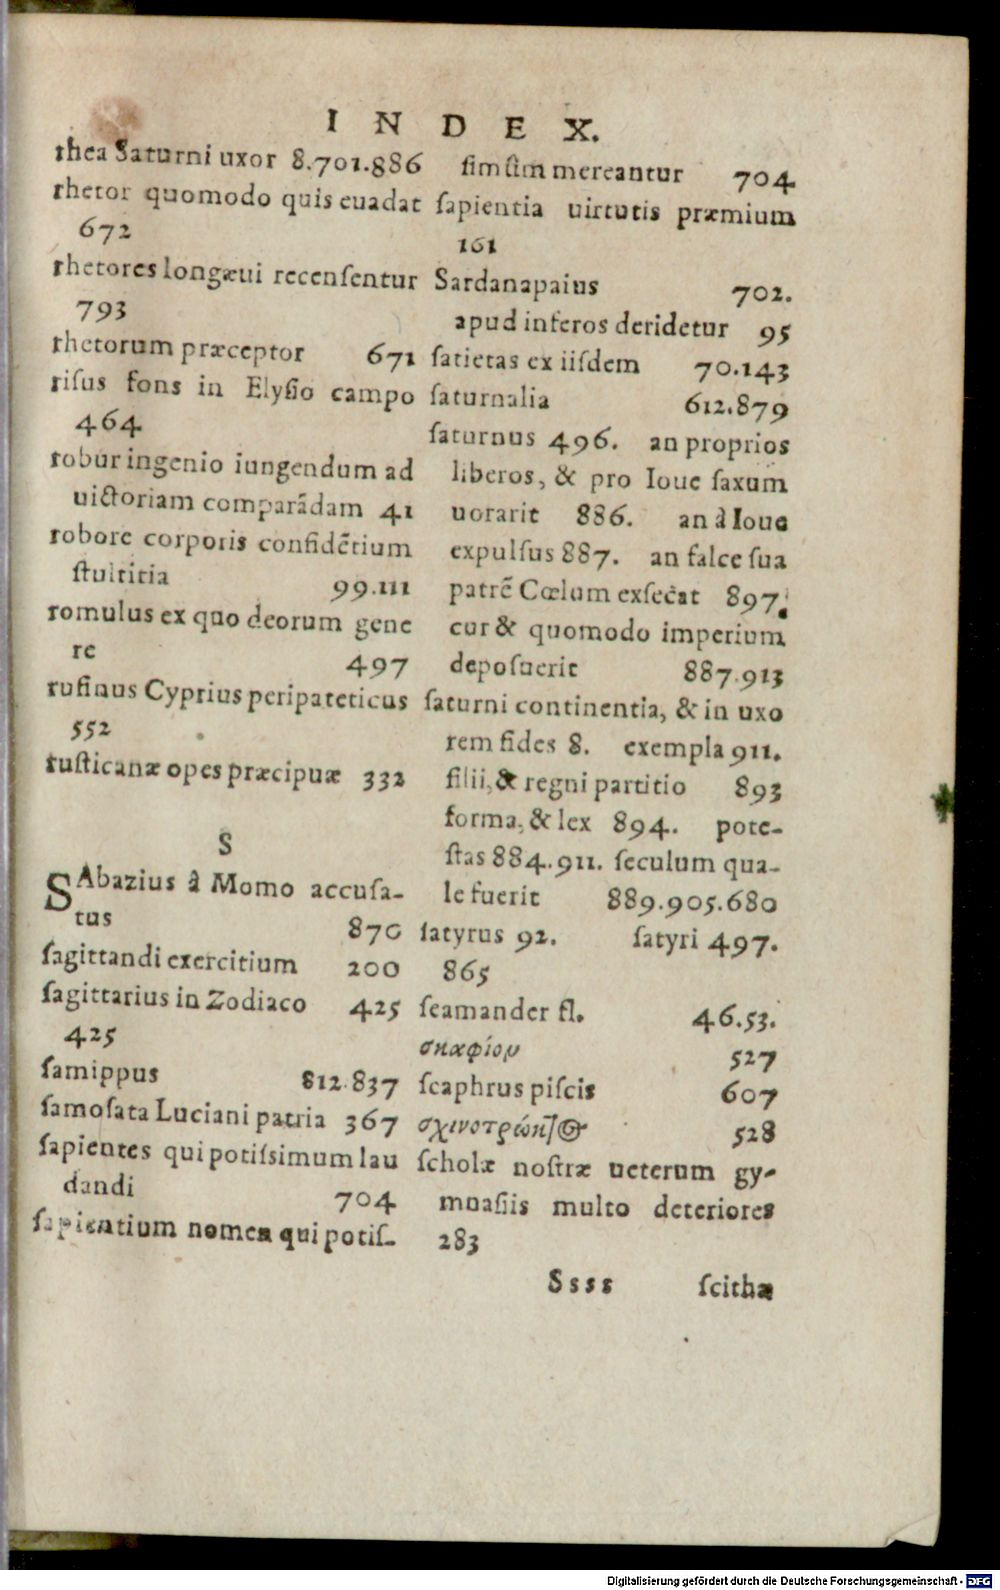 INDEX.
rhea Saturni uxor 8.701.886
rhetor quomodo quis euadat
672
rhetores longæui recenſentur
793
rhetorum præceptor 671
riſus fons in Elyſio campo
464
robur ingenio iungendum ad
uictoriam comparãdam 41
robore corporis confidẽtium
ſtultitia 99.111
romulus ex quo deorum gene
re 497
rufinus Cyprius peripateticus
552
ruſticanæ opes præcipuæ 332
S
SAbazius â Momo accuſa-
tus 870
ſagittandi exercitium 200
ſagittarius in Zodiaco 425
425
ſamippus 812.837
ſamoſata Luciani patria 367
ſapientes qui potiſsimum lau
dandi 704
ſapientium nomen qui potiſ-
ſimũm mereantur 704
ſapientia uirtutis præmium
161
Sardanapaius 702.
apud inferos deridetur 95
ſatietas ex iiſdem 70.143
ſaturnalia 612.879
ſaturnus 496. an proprios
liberos, & pro Ioue ſaxum
uorarit 886. an â Ioue
expulſus 887. an falce ſua
patrẽ Cœlum exſecat 897.
cur & quomodo imperium
depoſuerit 887.913
ſaturni continentia, & in uxo
rem fides 8. exempla 911.
filii, & regni partitio 893
forma, & lex 894. pote-
ſtas 884.911. ſeculum qua-
le fuerit 889.905.680
ſatyrus 92. ſatyri 497.
865
ſeamander fl. 46.53.
σκαφίον 527
ſcaphrus piſcis 607
528
ſcholæ noſtræ ueterum gy-
mnaſiis multo deteriores
283
Ssss ſcithæ
Digitalisierung gefördert durch die Deutsche Forschungsgemeinschaft - DFG